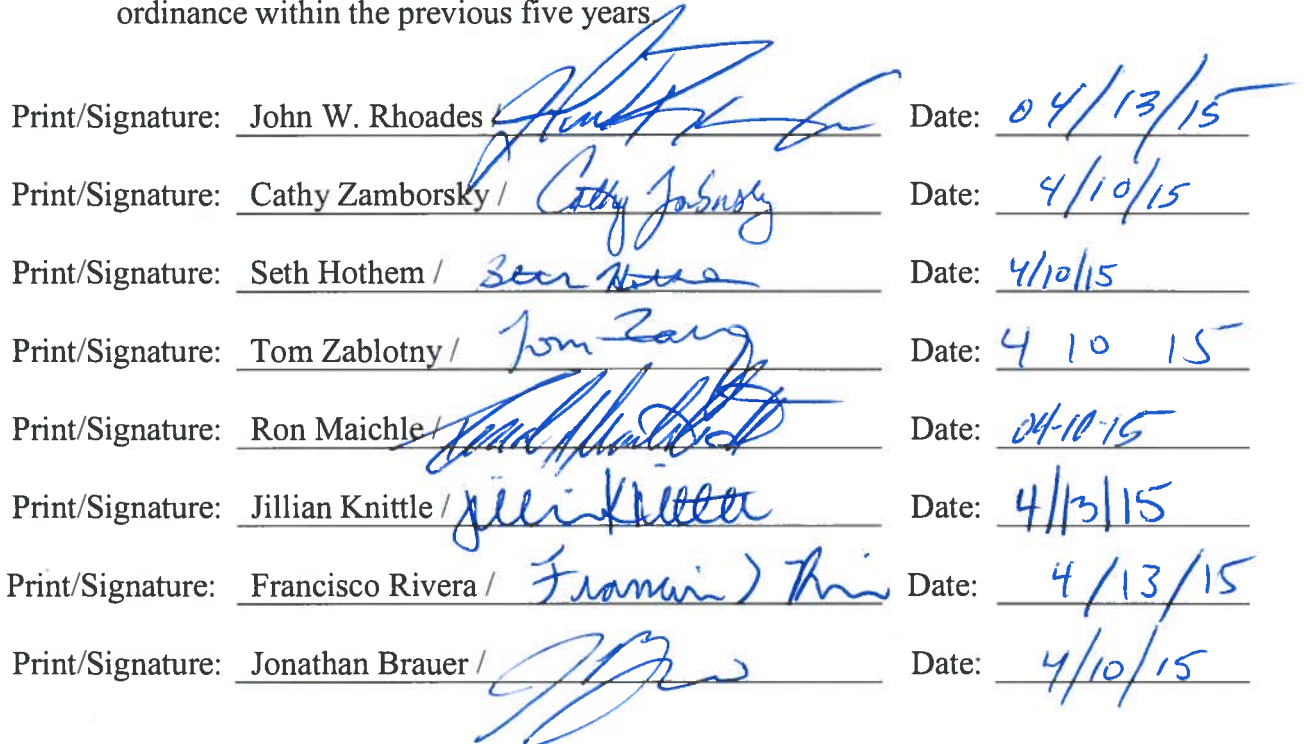 ordinance within the previous five years.
Print/Signature: John W. Rhoades / Date: 04/13/15
Print/Signature: Cathy Zamborsky / Cathy Date: 4/10/15
Print/Signature: Seth Hothem / Date: 4/10/15
Print/Signature: Tom Zablotny / Tom Date: 4 10 15
Print/Signature: Ron Maichle / Date: 04-10-15
Print/Signature: Jillian Knittle / Date: 4/13/15
Print/Signature: Francisco Rivera / Date: 4/13/15
Print/Signature: Jonathan Brauer / Date: 4/10/15